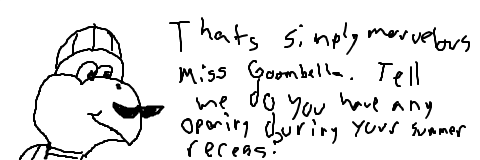 Thats simply marvelous
Miss Goombella. Tell
me do you have any
opening during your summer
recess?